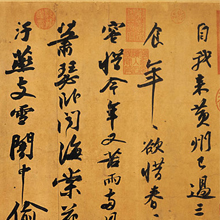 自我來黃州已過三
食年〻欲惜春〻
容惜今年又苦雨兩
蕭瑟卧聞海棠花
汙燕支雪闇中偷